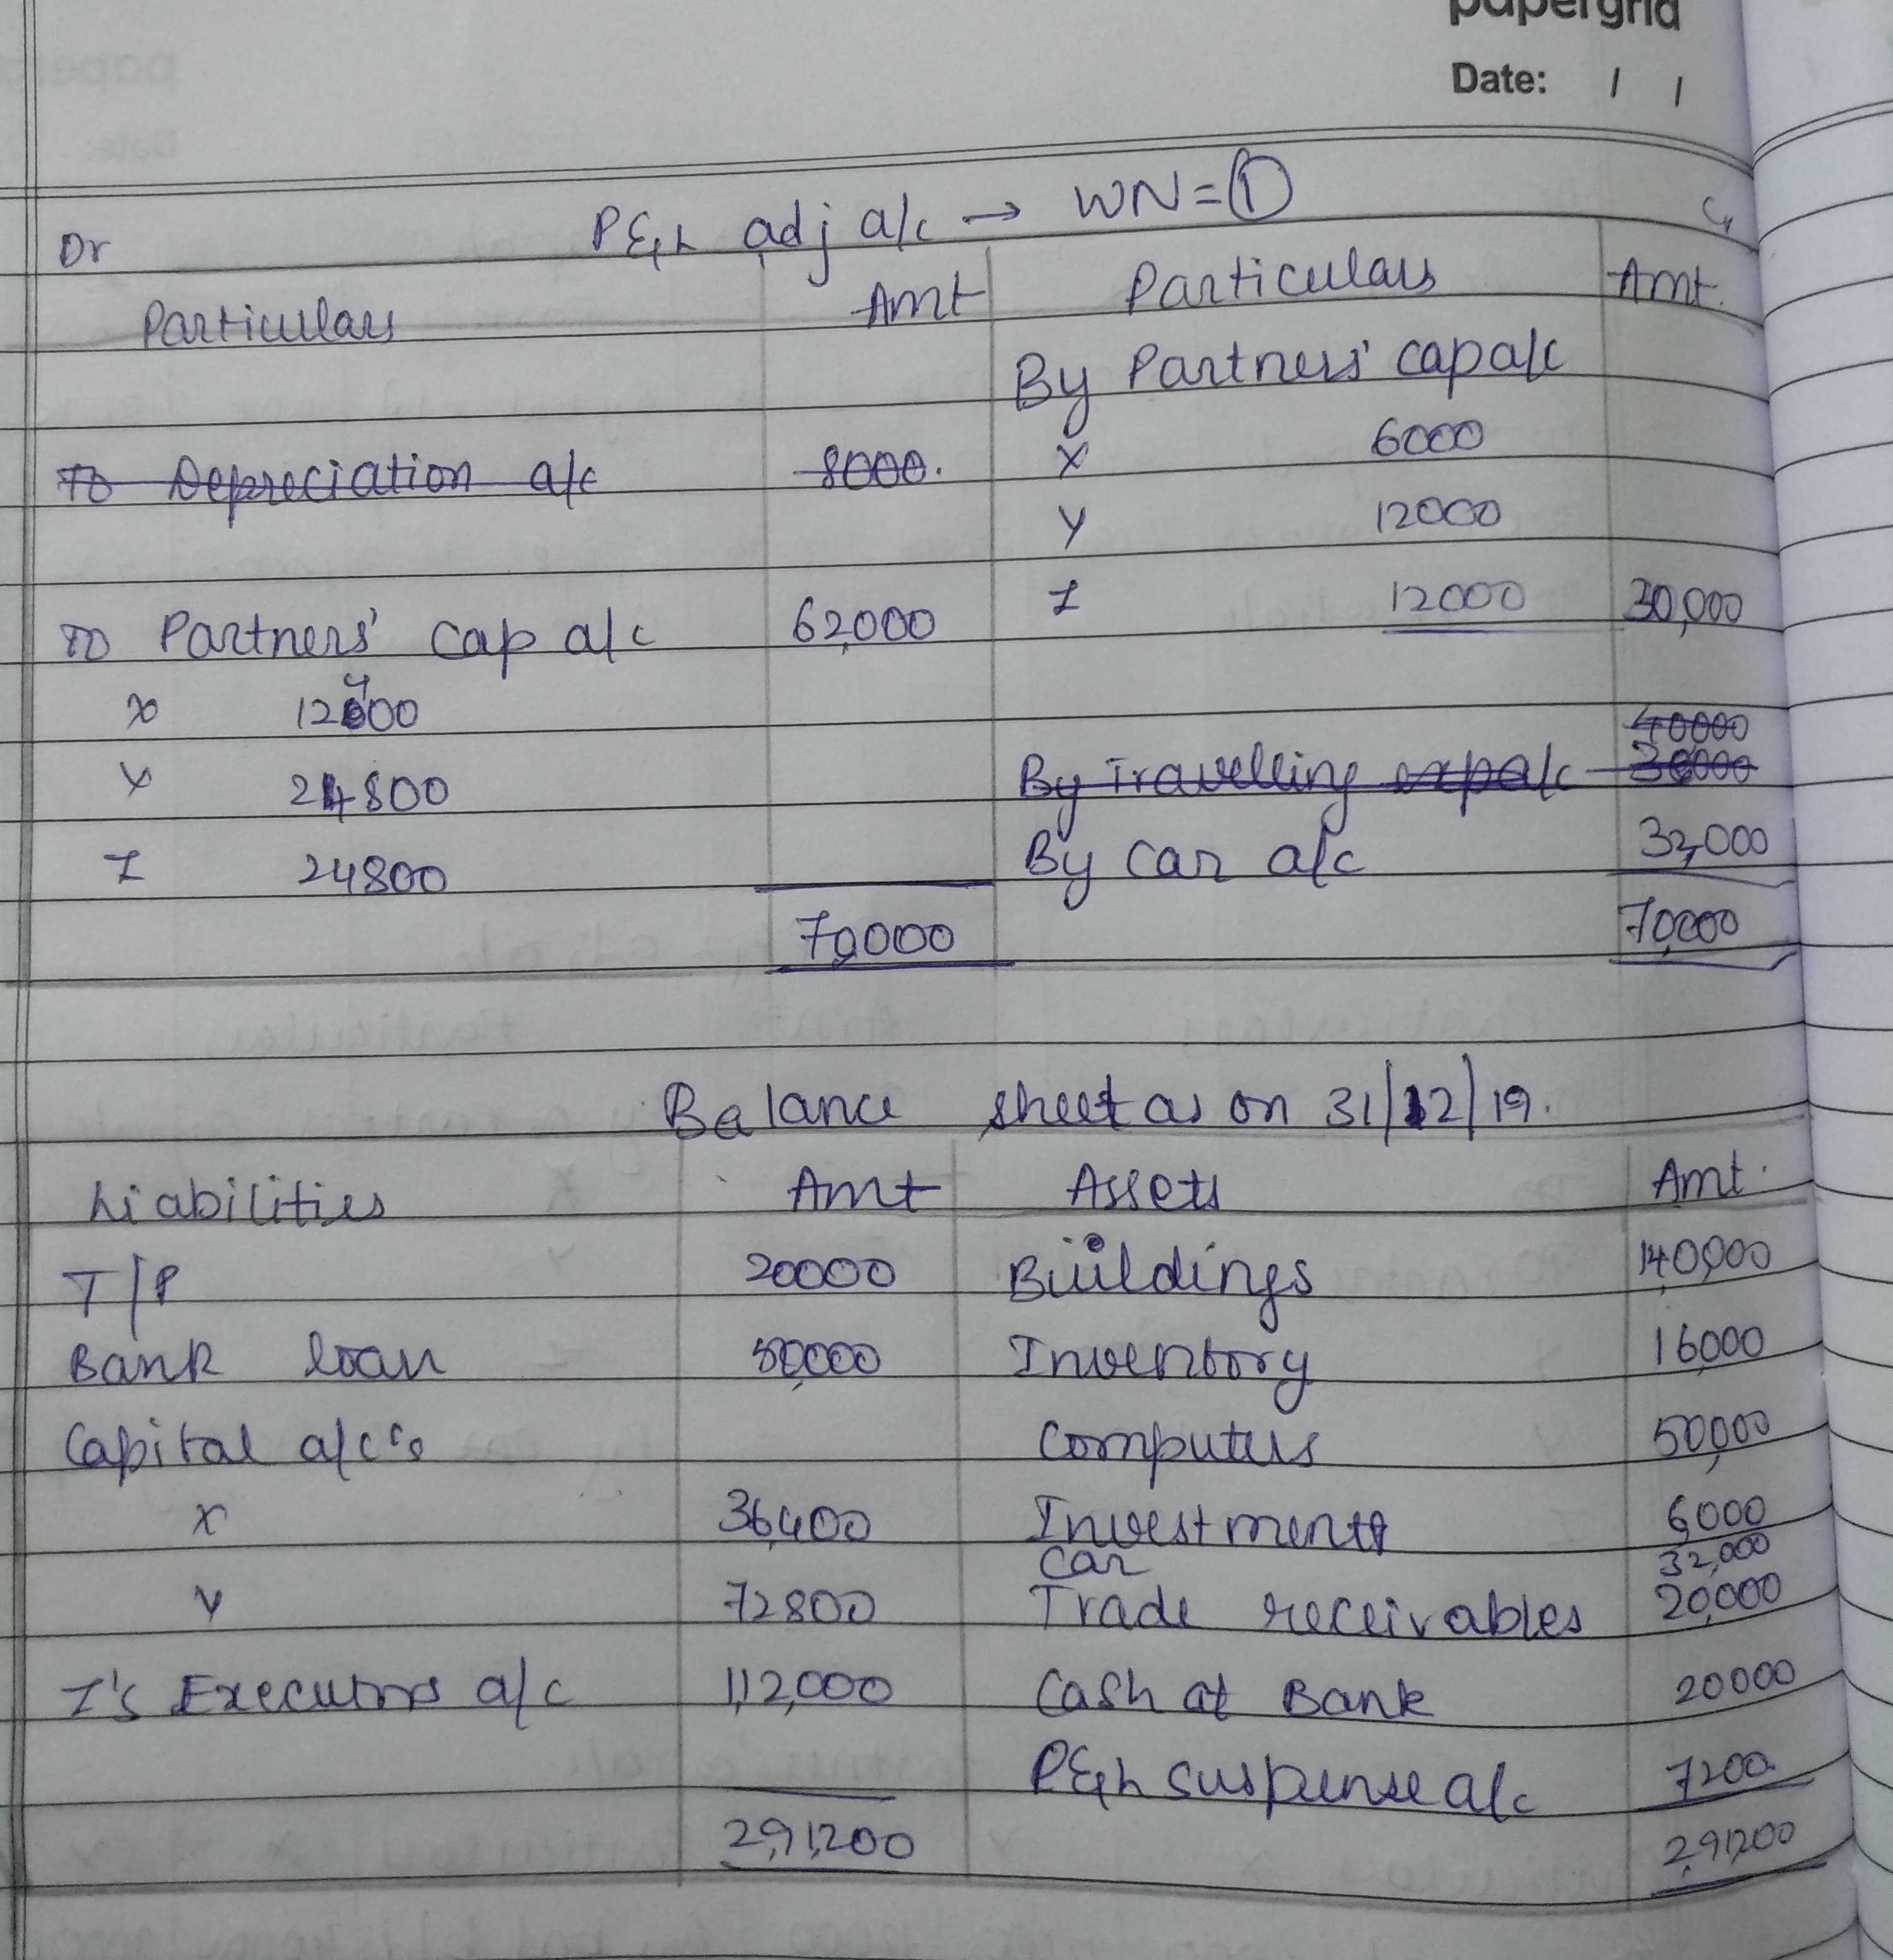 papergrid
Date: / /
P&L adj a/c → WN = ①
Dr Cr
Particulars Amt Particulars Amt.
By Partners' cap a/c
To Depreciation a/c 8000. X 6000
Y 12000
Z 12000 30,000
To Partners' cap a/c 62,000
X 12400
40000
Y 24800 By Travelling exp a/c
Z 24800 By Car a/c 32,000
70,000 70,000
Balance sheet as on 31/12/19.
Liabilities Amt Assets Amt.
T/P 20000 Buildings 140,000
Bank loan 50,000 Inventory 16000
Capital a/c's Computers 50,000
X 36,400 Investments 6000
Car 32,000
Y 72800 Trade receivables 20,000
Z's Executors a/c 1,12,000 Cash at Bank 20000
P&L suspense a/c 7200
2,91,200 2,91,200